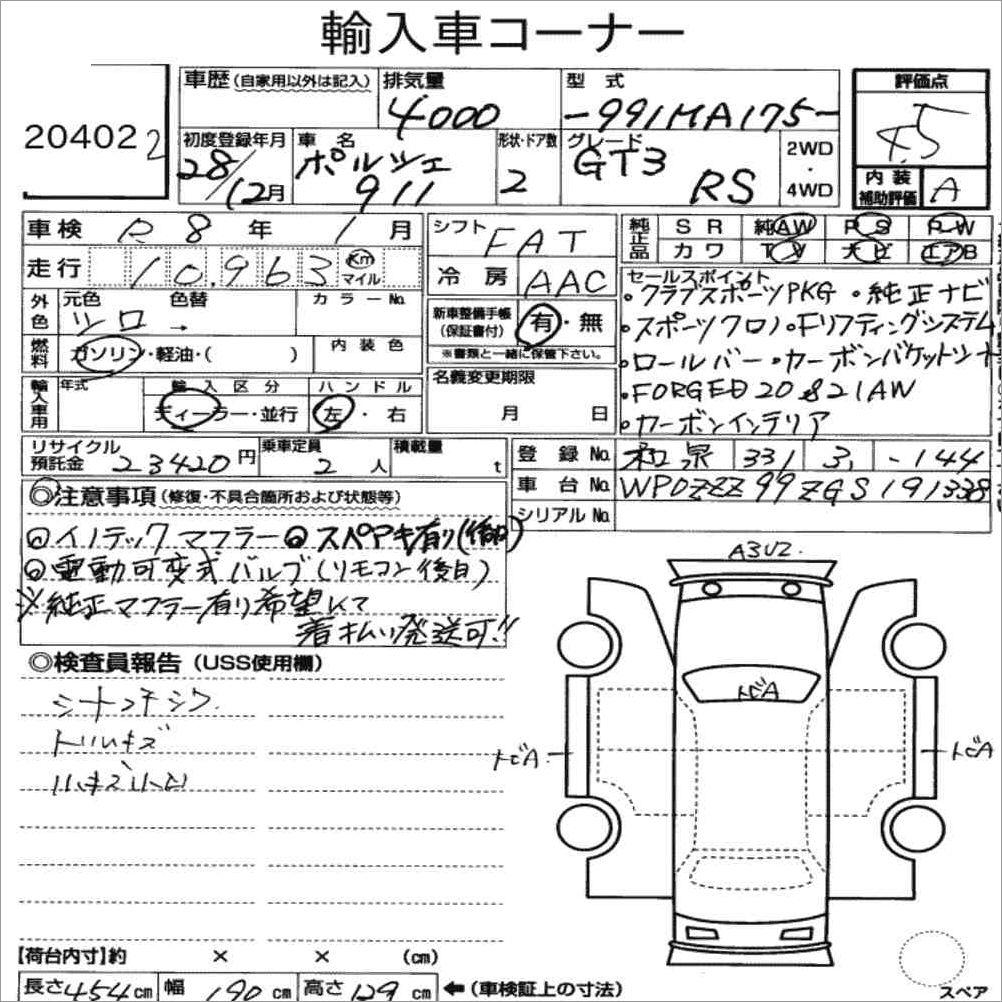 輸入車コーナー
20402 2
車歴(自家用以外は記入) 排気量 4000 型式 -991MA175-
評価点 4.5
初度登録年月 28/12月 車名 ポルシェ 911 形状・ドア数 2 グレード GT3 RS 2WD・4WD
内装補助評価 A
車検 R8年 1月
走行 10,963 Km マイル
シフト FAT
冷房 AAC
純正品 SR 純AW PS PW
カワ TV ナビ エアB
外色 元色 色替 カラーNo.
シロ →
燃料 ガソリン・軽油・( ) 内装色
新車整備手帳(保証書付) 有・無
※書類と一緒に保管下さい。
輸入車用 年式 輸入区分 ディーラー・並行 ハンドル 左・右
名義変更期限 月 日
セールスポイント
・クラブスポーツPKG ・純正ナビ
・スポーツクロノ ・Fリフティングシステム
・ロールバー ・カーボンバケットシート
・FORGED 20&21AW
・カーボンインテリア
リサイクル預託金 23420円 乗車定員 2人 積載量 t
登録No. 和泉 331 -144
車台No. WP0ZZZ99ZGS191338
シリアルNo.
◎注意事項(修復・不具合箇所および状態等)
◎イノテックマフラー ◎スペアキー有り(後日)
◎電動可変式バルブ(リモコン後日)
※純正マフラー有り希望にて
着払い発送可!!
◎検査員報告(USS使用欄)
A3U2.
トビA
トビA
トビA
【荷台内寸】約 × × (cm)
長さ454cm 幅190cm 高さ129cm ←(車検証上の寸法)
スペア